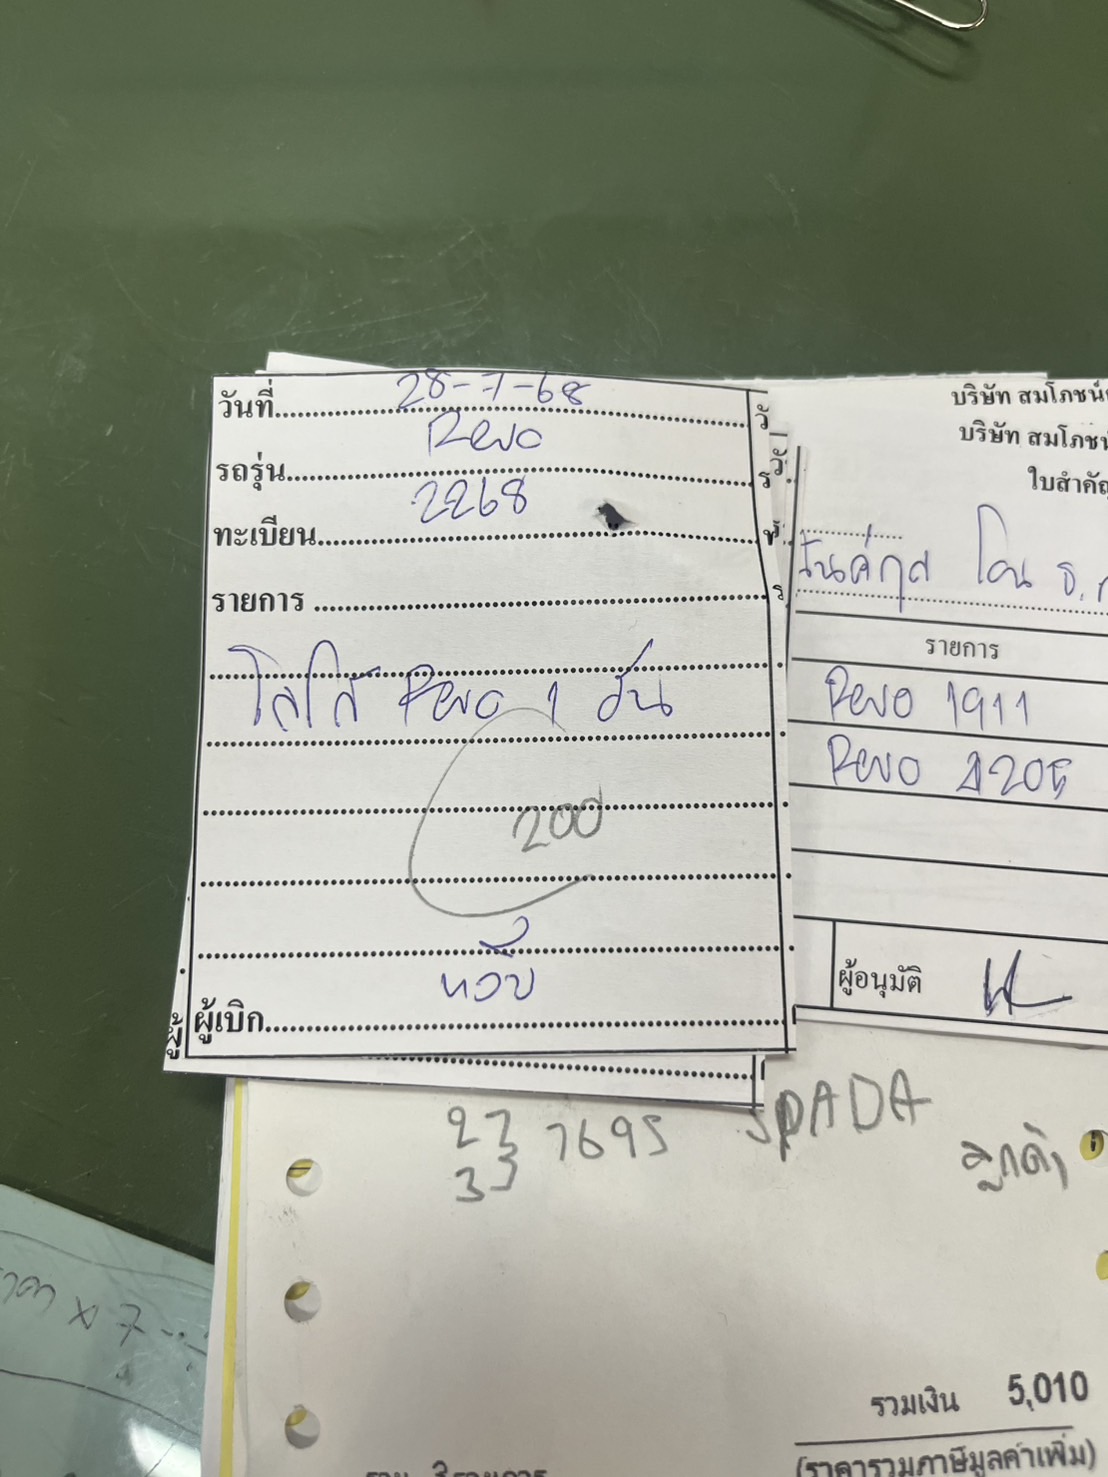 วันที่ 28-7-68
รถรุ่น Revo
ทะเบียน 2268
รายการ
โลโก้ Revo 1 อัน
200
ผู้เบิก
บริษัท สมโภชน์
บริษัท สมโภชน์
ใบสำคัญ
รายการ
Revo 1911
Revo 2205
ผู้อนุมัติ
27 7695 SPADA
33
ลูกค้า
x 7
รวมเงิน 5,010
(ราคารวมภาษีมูลค่าเพิ่ม)
รวม 3 รายการ